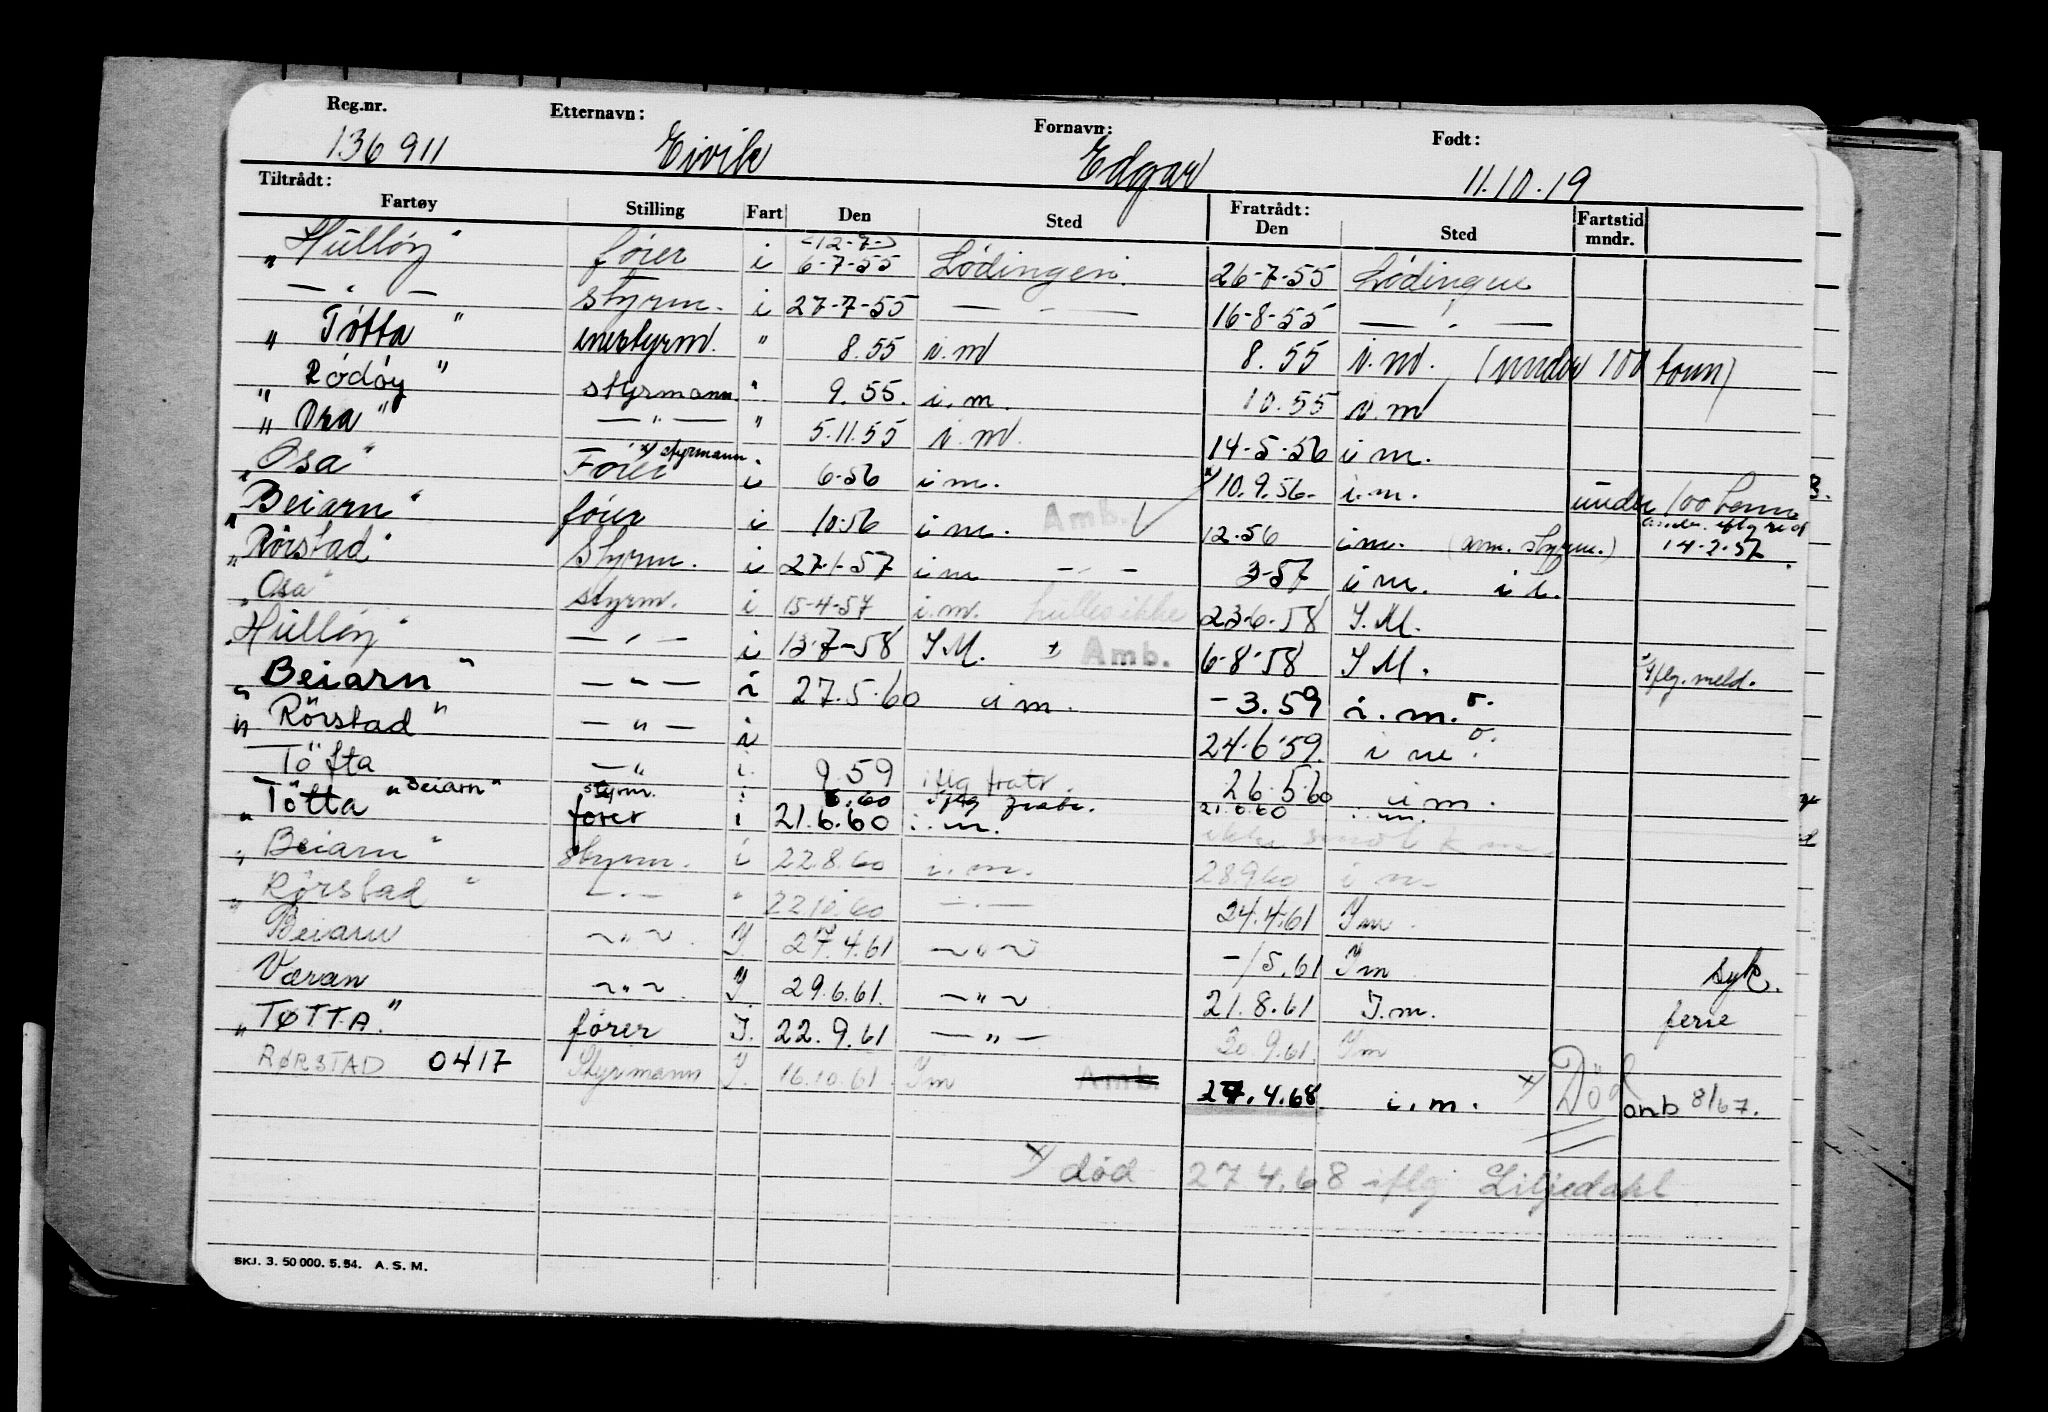 Reg.nr. Etternavn: Fornavn: Født:
136 911 Eivik Edgar 11.10.19
Tiltrådt: Fratrådt:
Fartøy Stilling Fart Den Sted Den Sted Fartstid mndr.
(12-7-)
"Hulløy" fører i 6-7-55 Lødingen. 26-7-55 Lødingen
— " — styrm. i 27-7-55 — " — 16-8-55 — " —
" Tøtta " enestyrm. " 8.55 i.m 8.55 i.m. (under 100 tonn)
" Rødøy " styrmann " 9.55. i.m. 10.55 i.m
" Ora " — " — " 5.11.55 i.m. 14-5-56 i m.
x) styrmann
"Osa" Fører i 6-56 i m. x) 10.9.56. i.m. under 100 tonn
"Beiarn" fører i 10-56 i m. Amb. 12.56 i m. (anm. styrm.) 14-2-57
"Rørstad" Styrm. i 27-1-57 i m — " — 3-57 i m. i t.
"Osa" styrm. i 15-4-57 i.m. hulles ikke 23-6-58 I.M.
"Hulløy" — " — i 13-7-58 I M. x Amb. 6-8-58 I M. x iflg. meld.
" Beiarn " — " — i 27.5.60 i m. - 3.59 i.m.
" Rørstad " — " — i 24-6-59. i m.
Töfta — " i. 9.59 iflg fratr. 26.5.60 i m.
"Beiarn" styrm. i 6.60 iflg fratr. 21.6.60 i.m.
" Tötta fører i 21.6.60 i.m. ikke sendt k
" Beiarn " Styrm. i 22.8.60 i.m. 28.9.60 i m
" Rørstad " — " — " 22.10.60 — " — 24.4.61 Im.
Beiarn ~ " ~ I 27.4.61 ~ " ~ -/5.61 Im syk.
Væran ~ " ~ I. 29.6.61. ~ " ~ 21.8.61 I.m. ferie
" TØTTA." fører I. 22.9.61 — " — 30.9.61. Im
RØRSTAD 0417 Styrmann I. 16.10.61. Im Amb. 27.4.68. i.m. x) Död omb 8/67.
x) død 27 4.68 iflg Liljedahl
SKJ. 3. 50 000. 5. 54. A. S. M.